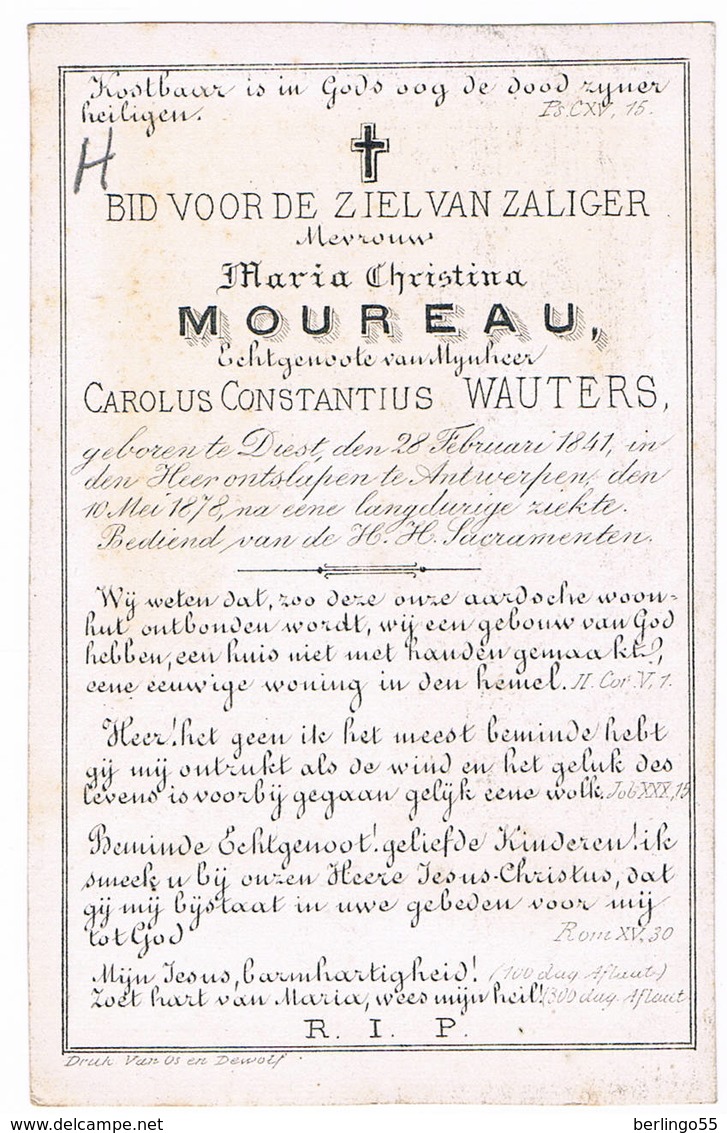 Kostbaar is in Gods oog de dood zyner
heiligen. Ps. CXV, 15.
H
BID VOOR DE ZIEL VAN ZALIGER
Mevrouw
Maria Christina
MOUREAU,
Echtgenoote van Mynheer
CAROLUS CONSTANTIUS WAUTERS,
geboren te Diest, den 28 Februari 1841, in
den Heer ontslapen te Antwerpen, den
10 Mei 1878, na eene langdurige ziekte.
Bediend van de H. H. Sacramenten.
Wij weten dat, zoo deze onze aardsche woon-
hut ontbonden wordt, wij een gebouw van God
hebben, een huis niet met handen gemaakt,
eene eeuwige woning in den hemel. II. Cor. V, 1.
Heer! het geen ik het meest beminde hebt
gij mij ontrukt als de wind en het geluk des
levens is voorbij gegaan gelijk eene wolk. Job XXX, 15
Beminde Echtgenoot! geliefde Kinderen! ik
smeek u bij onzen Heere Jesus-Christus, dat
gij mij bijstaat in uwe gebeden voor mij
tot God Rom XV, 30
Mijn Jesus, barmhartigheid! (100 dag. Aflaat)
Zoet hart van Maria, wees mijn heil! (300 dag. Aflaat
R. I. P.
Druk Van Os en Dewolf
berlingo55